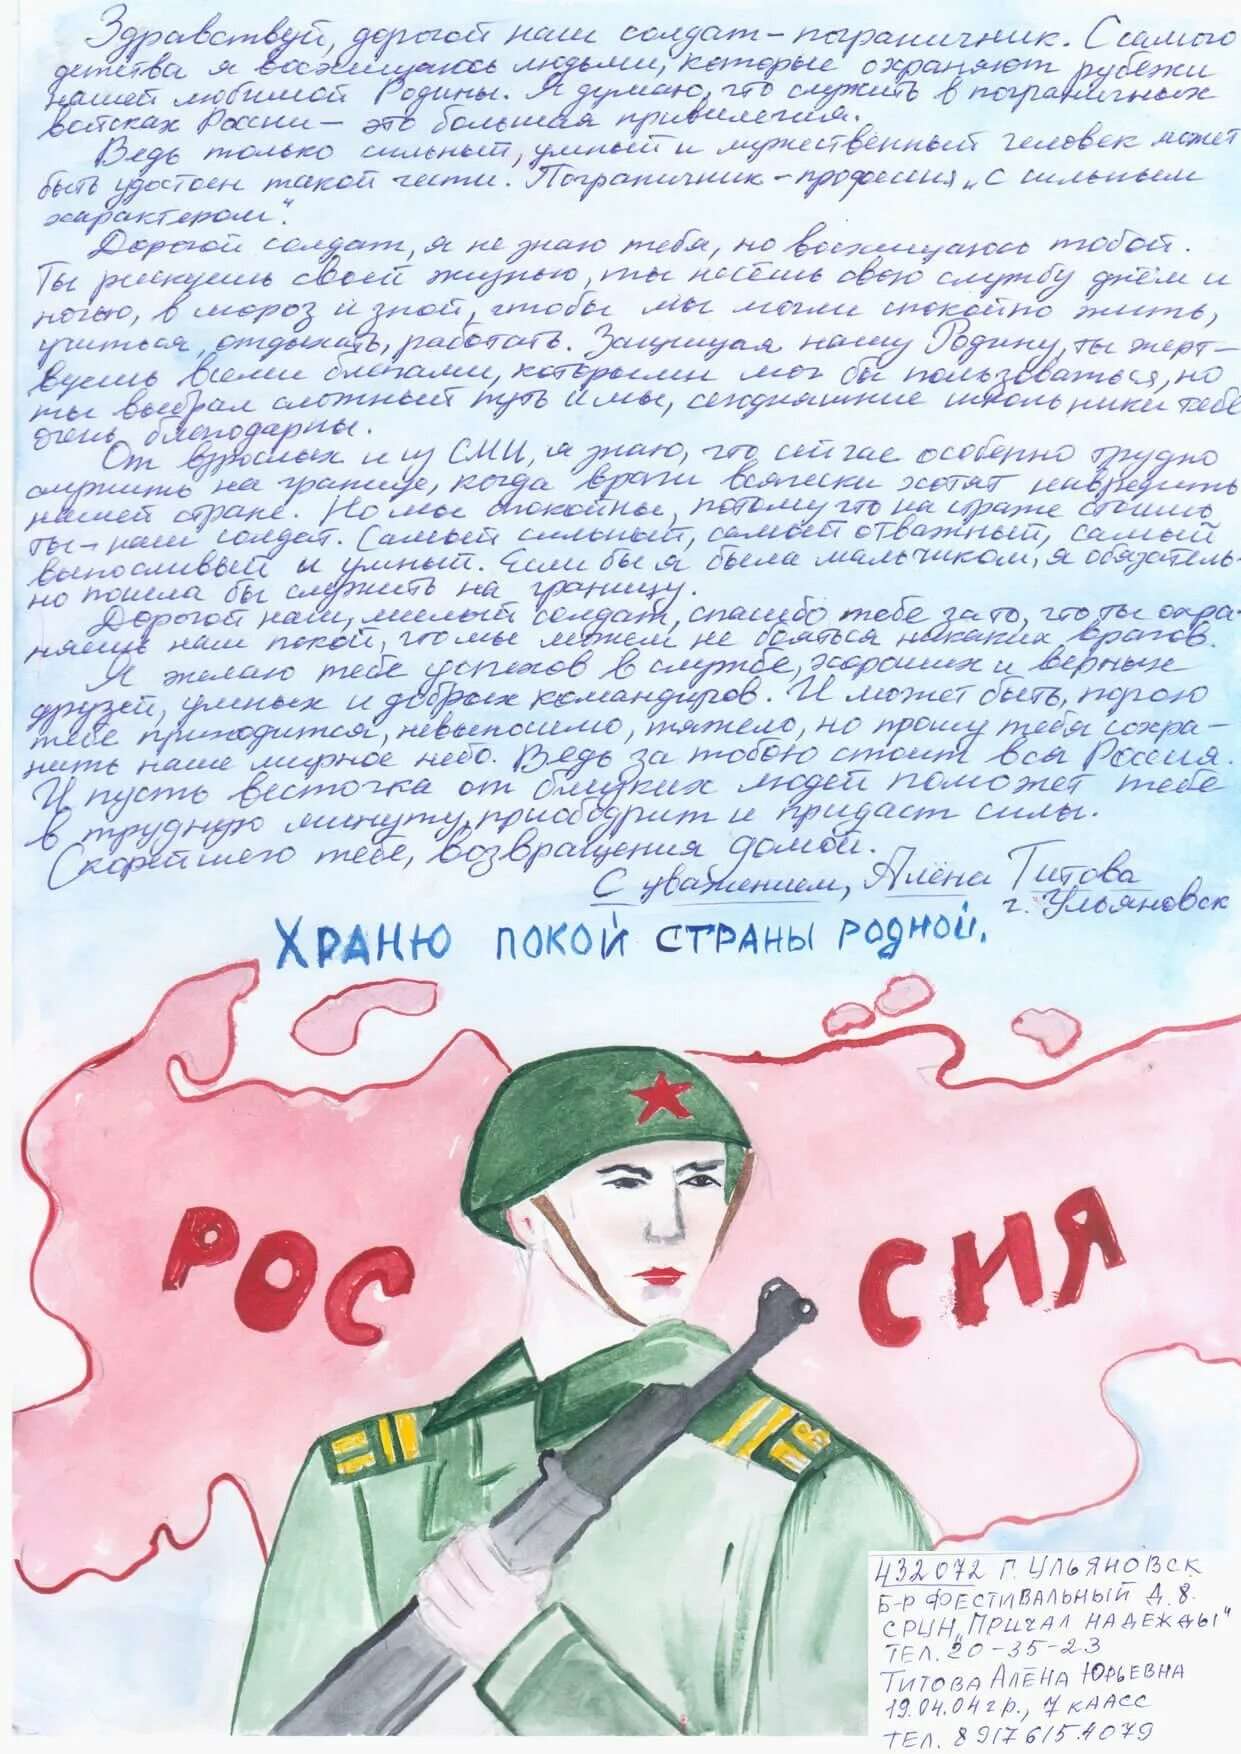 Здравствуй, дорогой наш солдат-пограничник. С самого
детства я восхищаюсь людьми, которые охраняют рубежи
нашей любимой Родины. Я думаю, что служить в пограничных
войсках России – это большая привилегия.
Ведь только сильный, умный и мужественный человек может
быть удостоен такой чести. Пограничник – профессия „с сильным
характером".
Дорогой солдат, я не знаю тебя, но восхищаюсь тобой.
Ты рискуешь своей жизнью, ты несёшь свою службу днём и
ночью, в мороз и зной, чтобы мы могли спокойно жить,
учиться, отдыхать, работать. Защищая нашу Родину, ты жерт-
вуешь всеми благами, которыми мог бы пользоваться, но
ты выбрал сложный путь и мы, сегодняшние школьники тебе
очень благодарны.
От взрослых и из СМИ, я знаю, что сейчас особенно трудно
служить на границе, когда враги всячески хотят навредить
нашей стране. Но мы спокойны, потому что на страже стоишь
ты – наш солдат. Самый сильный, самый отважный, самый
выносливый и умный. Если бы я была мальчиком, я обязатель-
но пошла бы служить на границу.
Дорогой наш, милый солдат, спасибо тебе за то, что ты охра-
няешь наш покой, что мы можем не бояться никаких врагов.
Я желаю тебе успехов в службе, хороших и верных
друзей, умных и добрых командиров. И может быть, порою
тебе приходится, невыносимо, тяжело, но прошу тебя сохра-
нить наше мирное небо. Ведь за тобою стоит вся Россия.
И пусть весточка от близких людей поможет тебе
в трудную минуту, приободрит и придаст силы.
Скорейшего тебе, возвращения домой.
С уважением, Алёна Титова
г. Ульяновск
ХРАНЮ ПОКОЙ СТРАНЫ РОДНОЙ.
РОССИЯ
ПВ
432072 Г. УЛЬЯНОВСК
Б-Р ФЕСТИВАЛЬНЫЙ Д. 8.
СРЦН „ПРИЧАЛ НАДЕЖДЫ"
ТЕЛ. 20-35-23
ТИТОВА АЛЁНА ЮРЬЕВНА
19.04.04 г.р., 7 КЛАСС
ТЕЛ. 8 917 615 4079